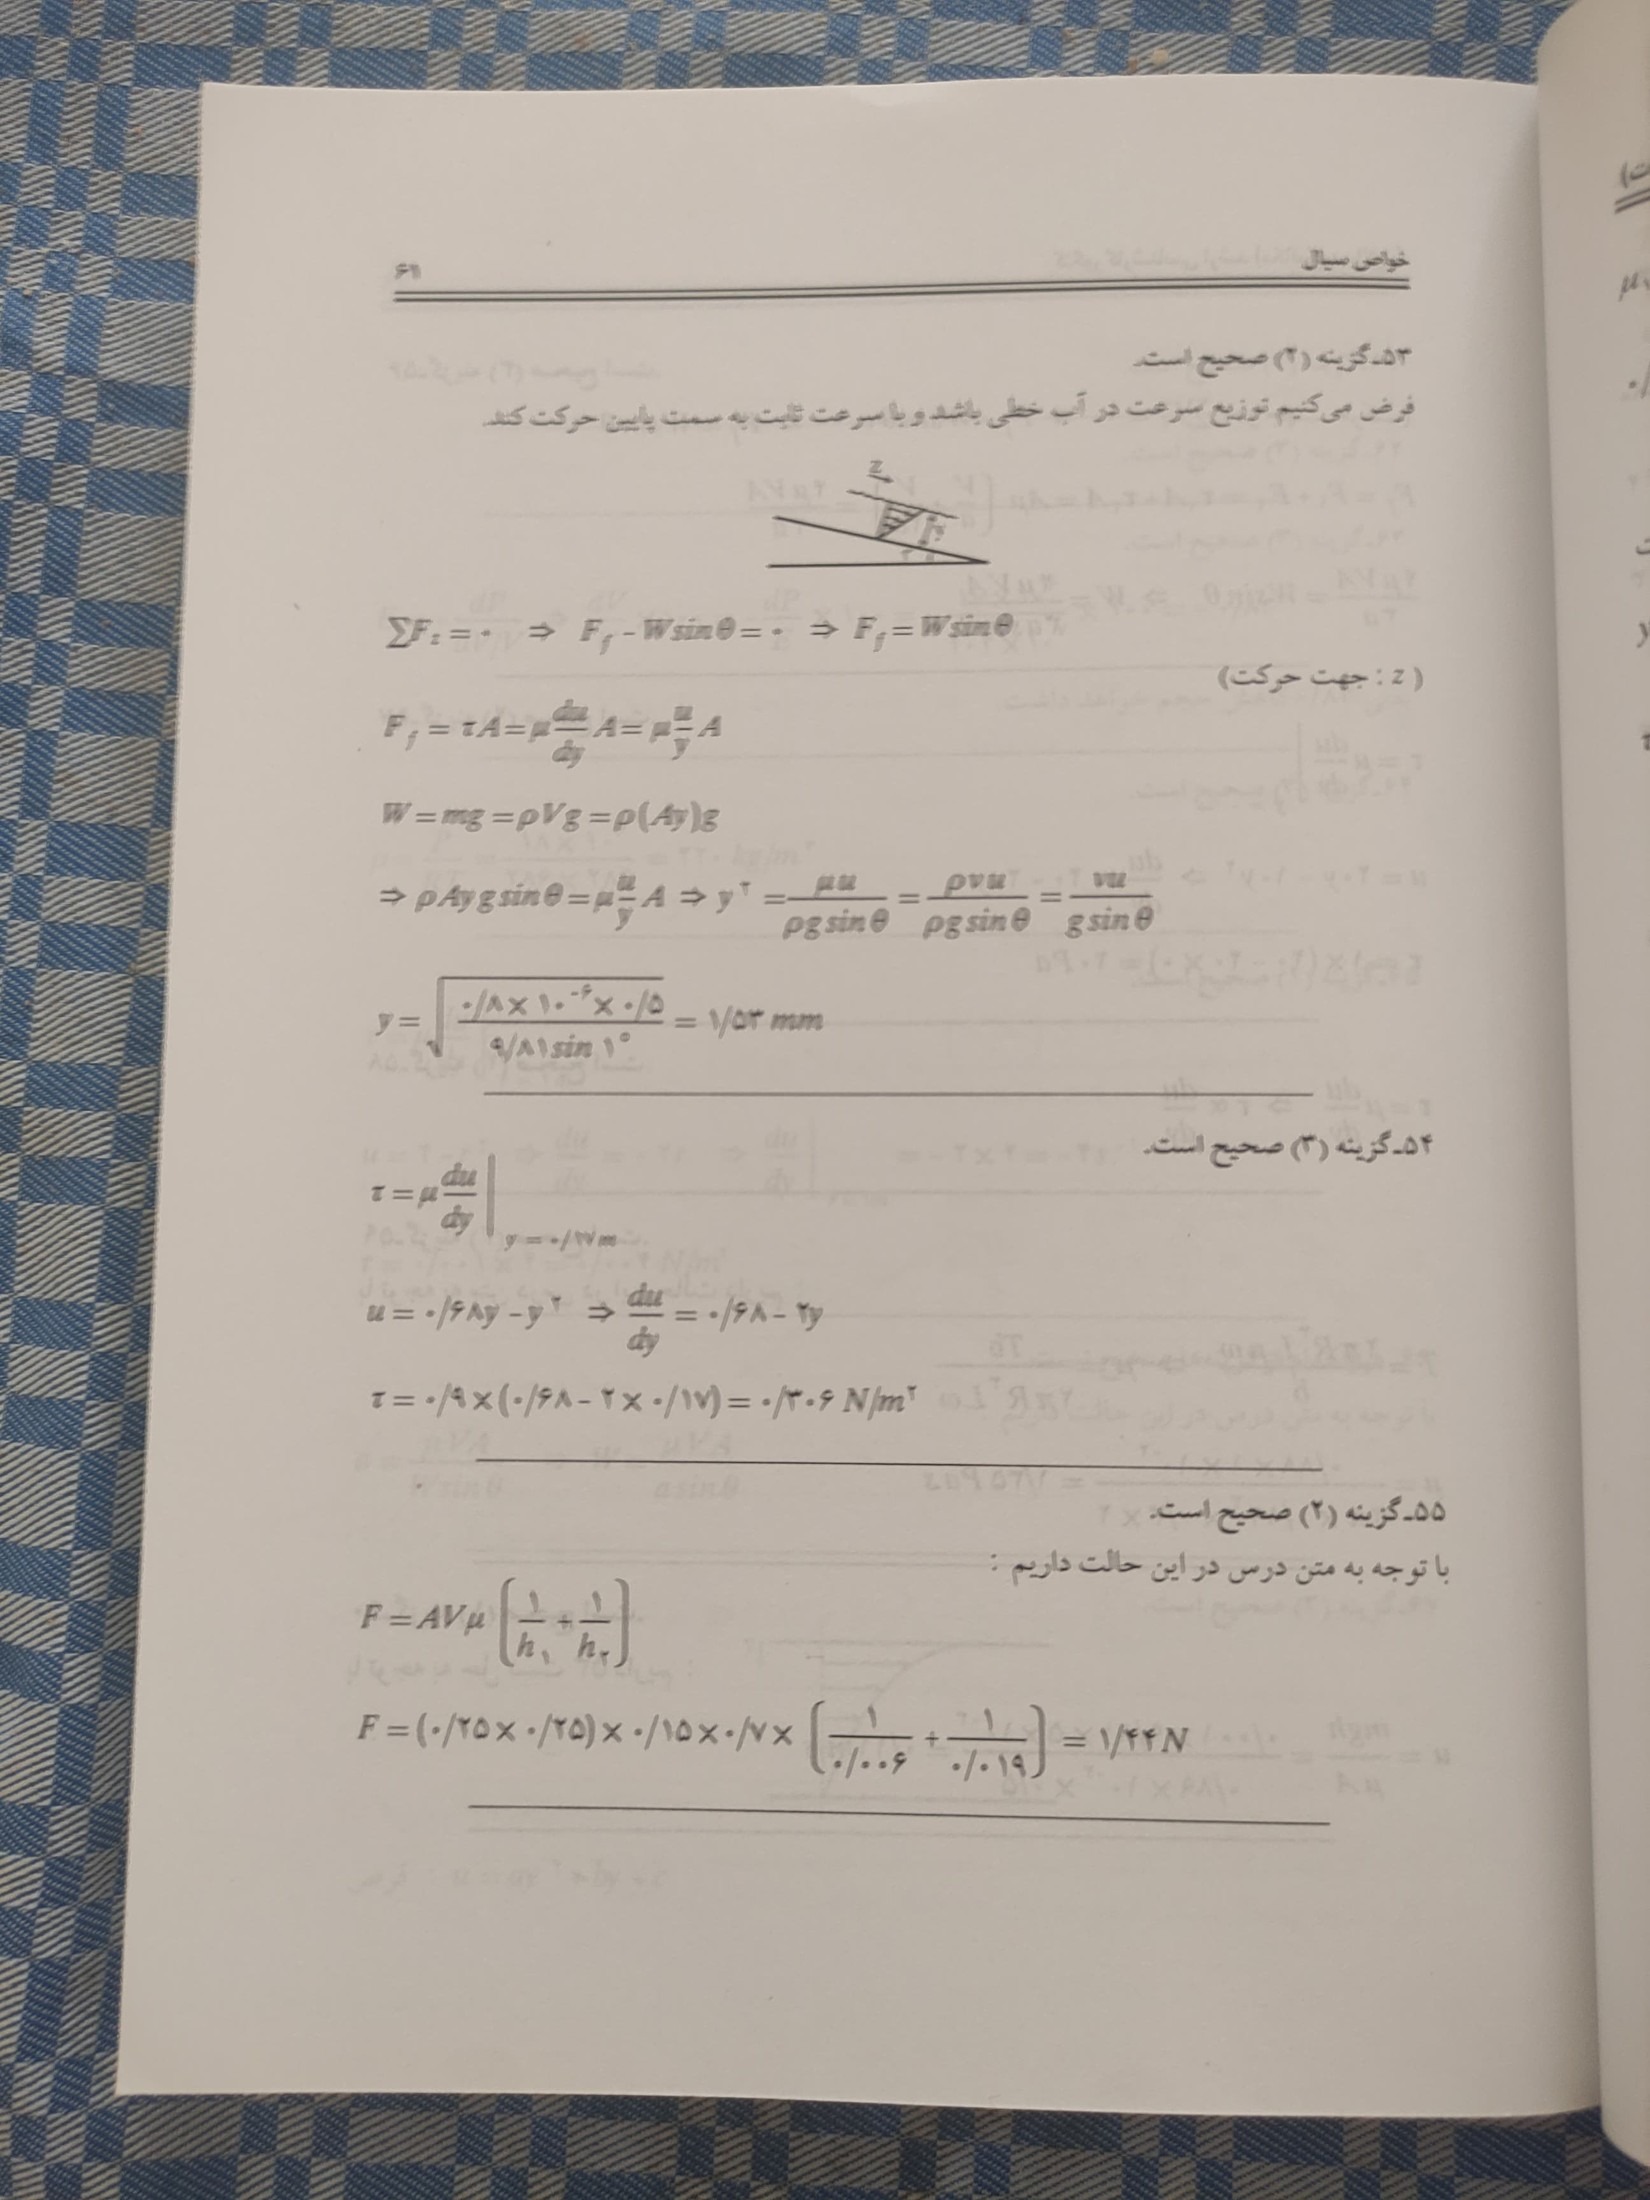 خواص سیال ۶۱
۵۳ـ گزینه (۲) صحیح است.
فرض می‌کنیم توزیع سرعت در آب خطی باشد و با سرعت ثابت به سمت پایین حرکت کند.
z
∑F_z = ۰ ⇒ F_f − W sin θ = ۰ ⇒ F_f = W sin θ
( z : جهت حرکت)
F_f = τA = μ du/dy A = μ u/y A
W = mg = ρVg = ρ(Ay)g
⇒ ρAyg sin θ = μ u/y A ⇒ y² = μu / ρg sin θ = ρνu / ρg sin θ = νu / g sin θ
y = √(۰/۸ × ۱۰^−۶ × ۰/۵ / ۹/۸۱ sin ۱°) = ۱/۵۳ mm
۵۴ـ گزینه (۳) صحیح است.
τ = μ du/dy | y = ۰/۱۷ m
u = ۰/۶۸y − y² ⇒ du/dy = ۰/۶۸ − ۲y
τ = ۰/۹ × (۰/۶۸ − ۲ × ۰/۱۷) = ۰/۳۰۶ N/m²
۵۵ـ گزینه (۲) صحیح است.
با توجه به متن درس در این حالت داریم :
F = AVμ (۱/h_۱ + ۱/h_۲)
F = (۰/۲۵ × ۰/۲۵) × ۰/۱۵ × ۰/۷ × (۱ / ۰/۰۰۶ + ۱ / ۰/۰۱۹) = ۱/۴۴ N